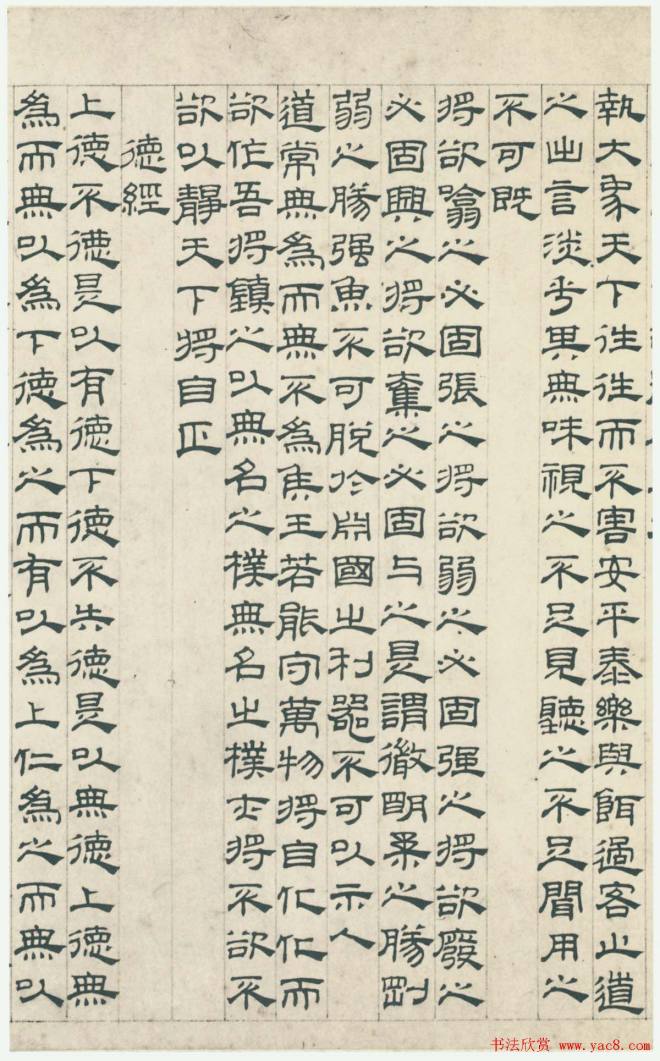 執大象天下往往而不害安平泰樂與餌過客止道
之出言淡乎其無味視之不足見聽之不足聞用之
不可既
將欲噏之必固張之將欲弱之必固强之將欲廢之
必固興之將欲奪之必固与之是謂微明柔之勝剛
弱之勝强魚不可脫於淵國之利器不可以示人
道常無為而無不為侯王若能守萬物將自化化而
欲作吾將鎮之以無名之樸無名之樸亦將不欲不
欲以靜天下將自正
德經
上德不德是以有德下德不失德是以無德上德無
為而無以為下德為之而有以為上仁為之而無以
书法欣赏 www.yac8.com